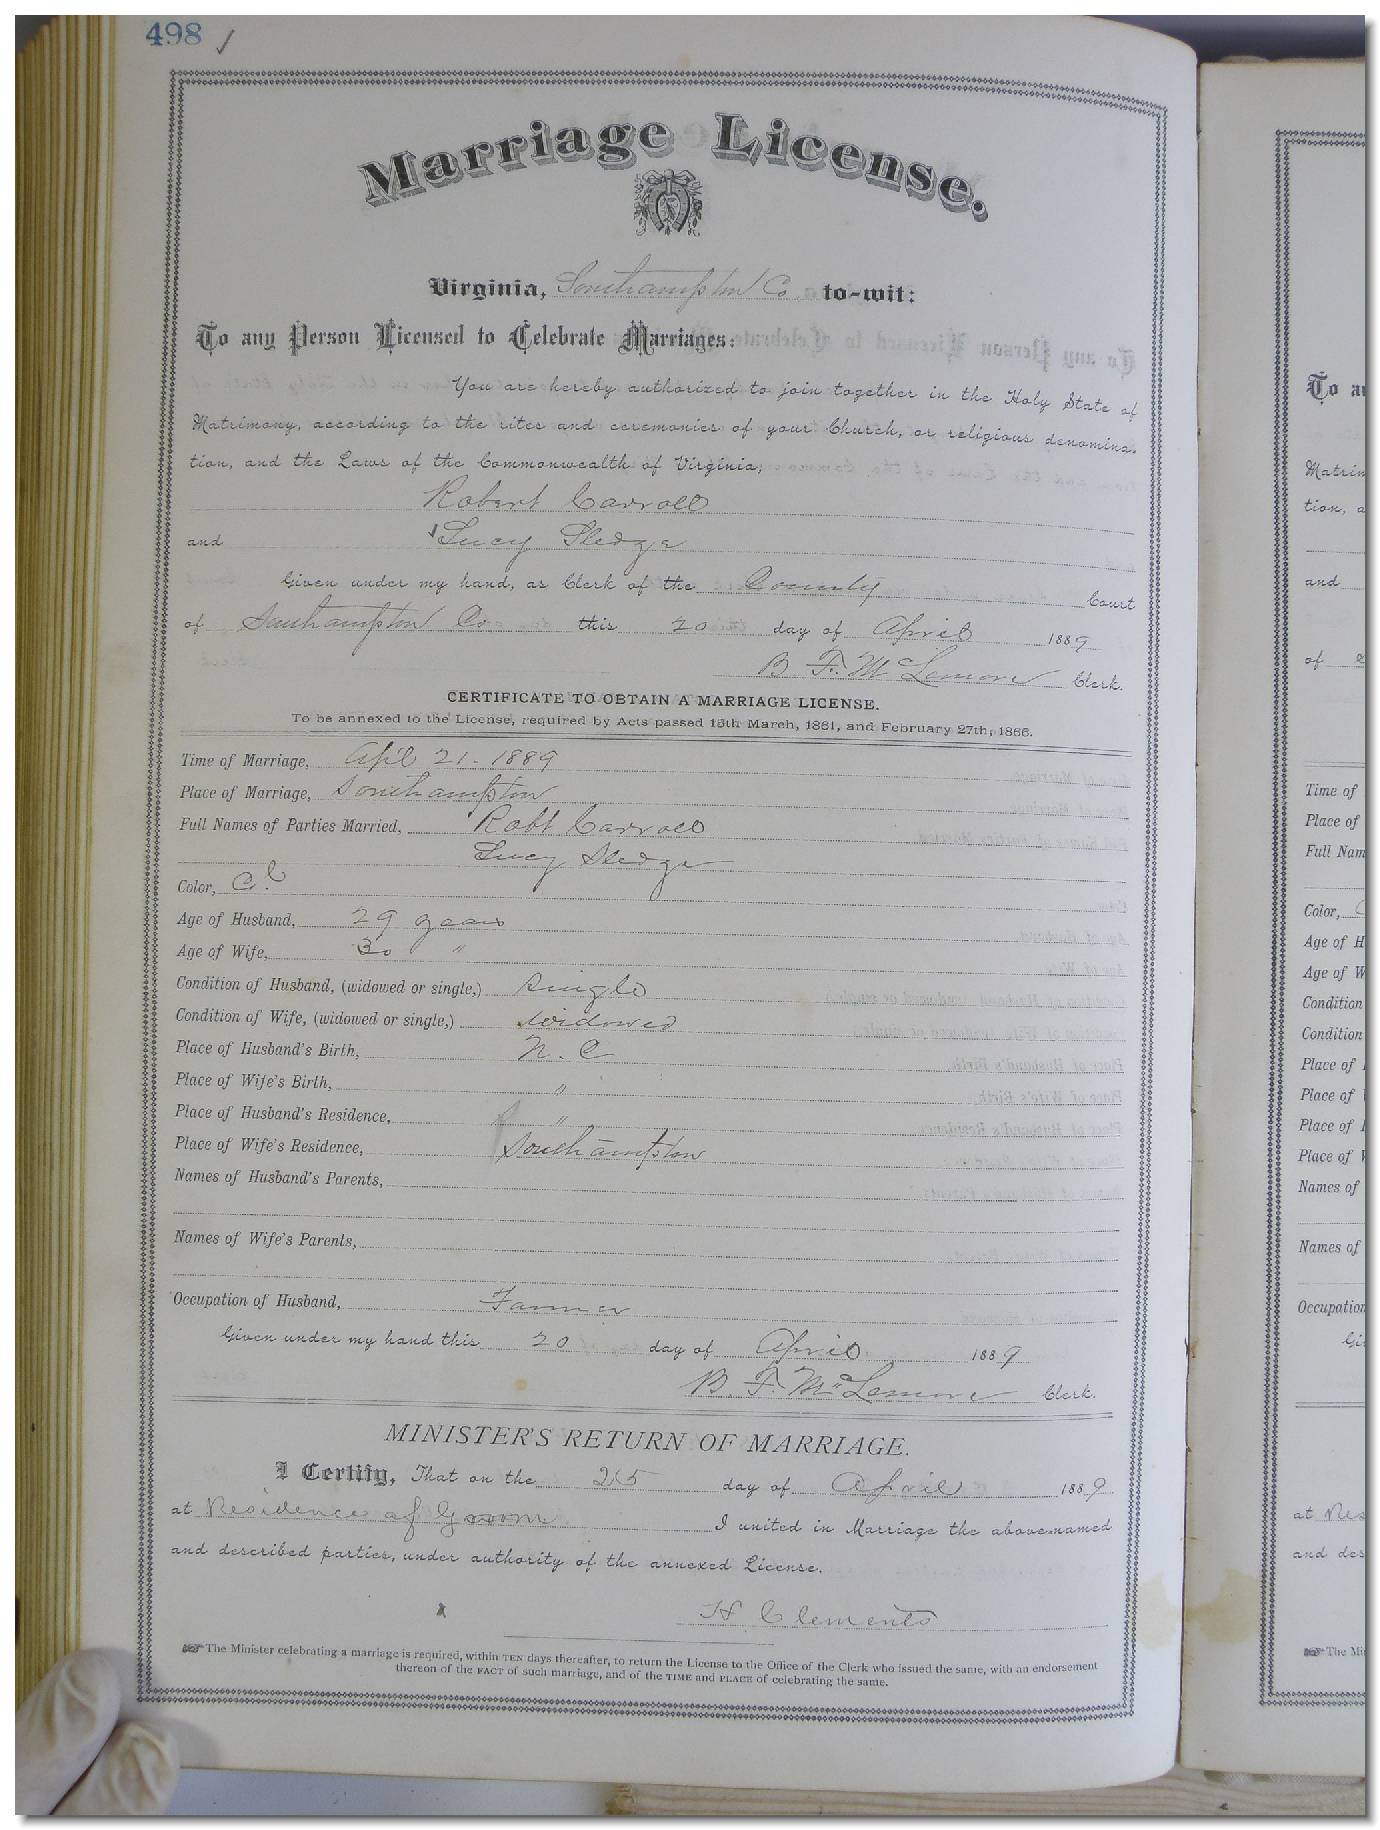 498 ✓
Marriage License.
Virginia, Southampton Co to-wit:
To any Person Licensed to Celebrate Marriages:
You are hereby authorized to join together in the Holy State of
Matrimony, according to the rites and ceremonies of your Church, or religious denomina-
tion, and the Laws of the Commonwealth of Virginia,
Robert Carroll
and Lucy Sledge
Given under my hand, as Clerk of the County Court
of Southampton Co this 20 day of April 1889
B. F. McLemore Clerk.
CERTIFICATE TO OBTAIN A MARRIAGE LICENSE.
To be annexed to the License, required by Acts passed 15th March, 1861, and February 27th, 1866.
Time of Marriage, Apil 21 - 1889
Place of Marriage, Southampton
Full Names of Parties Married, Robt Carroll
Lucy Sledge
Color, Cl
Age of Husband, 29 years
Age of Wife, 30 "
Condition of Husband, (widowed or single,) single
Condition of Wife, (widowed or single,) widowed
Place of Husband's Birth, N. C
Place of Wife's Birth, "
Place of Husband's Residence, "
Place of Wife's Residence, Southampton
Names of Husband's Parents,
Names of Wife's Parents,
Occupation of Husband, Farmer
Given under my hand this 20 day of April 1889
B. F. McLemore Clerk.
MINISTER'S RETURN OF MARRIAGE.
I Certify, That on the 25 day of April 1889
at Residence of Groom I united in Marriage the above-named
and described parties, under authority of the annexed License.
H Clements
☞ The Minister celebrating a marriage is required, within TEN days thereafter, to return the License to the Office of the Clerk who issued the same, with an endorsement
thereon of the FACT of such marriage, and of the TIME and PLACE of celebrating the same.
To a
Matrim
tion, a
and
of
Time of
Place of
Full Nam
Color,
Age of H
Age of W
Condition
Condition
Place of
Place of
Place of
Place of
Names of
Names of
Occupation
Gi
at Res
and des
☞ The Mi